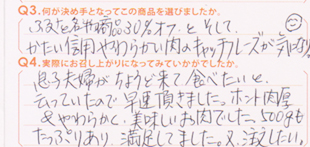 Q3.何が決め手となってこの商品を選びましたか。
ふるさと名物商品30%オフ と そして、
かたい信用やわらかい肉のキャッチフレーズが気になり
Q4.実際にお召し上がりになってみていかがでしたか。
息子夫婦がちょうど来て食べたいと、
云っていたので早速頂きました。ホント肉厚
&やわらかく、美味しいお肉でした、500gも
たっぷりあり、満足してました。又、注文したい。